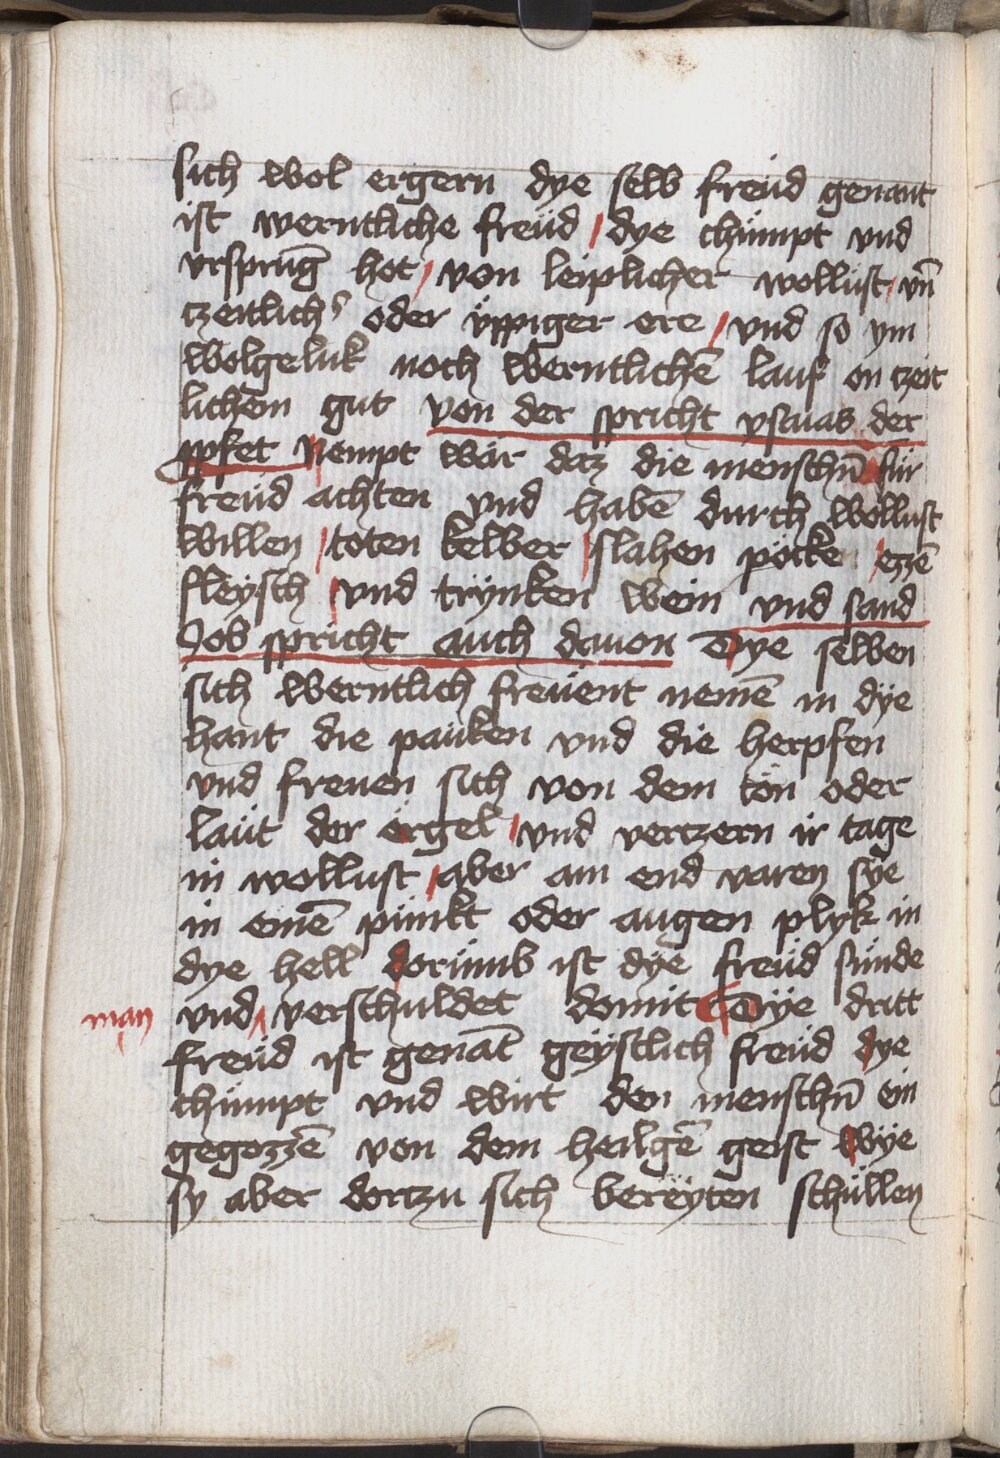 sich wol ergern dye selb freüd genant
ist werntliche freüd / dye chümpt vnd
vrsprūg hot / von leiplicher wollüst / vn̄
czeitlichs oder üppiger ere / vnd so ym
wolgeluk noch werntlichē lauf on czeit
lichem gut von der spricht ysaias der
ppfet Nempt wär daz die menschn̄ für
freüd achten vnd habē durch wollust
willen / toten kelber / slahen pöcke / ezzē
fleysch / vnd trynken wein vnd sand
Job spricht auch dauon Dye selben
sich werntlich freüent nemē in dye
hant die pauken vnd die herpfen
vnd freuen sich von dem tön oder
laüt der örgel / vnd verczern ir tage
in wollust / aber am end varen sye
in einē pünkt oder augen plyk in
dye hell dorümb ist dye freüd sünde
man
vnd verschuldet domit Dÿe dritt
freüd ist genāt geystlich freüd dye
chümpt vnd wirt den menschn̄ ein
gegozzē von dem heilgē geist Wÿe
sy aber dortzu sich bereyten schüllen